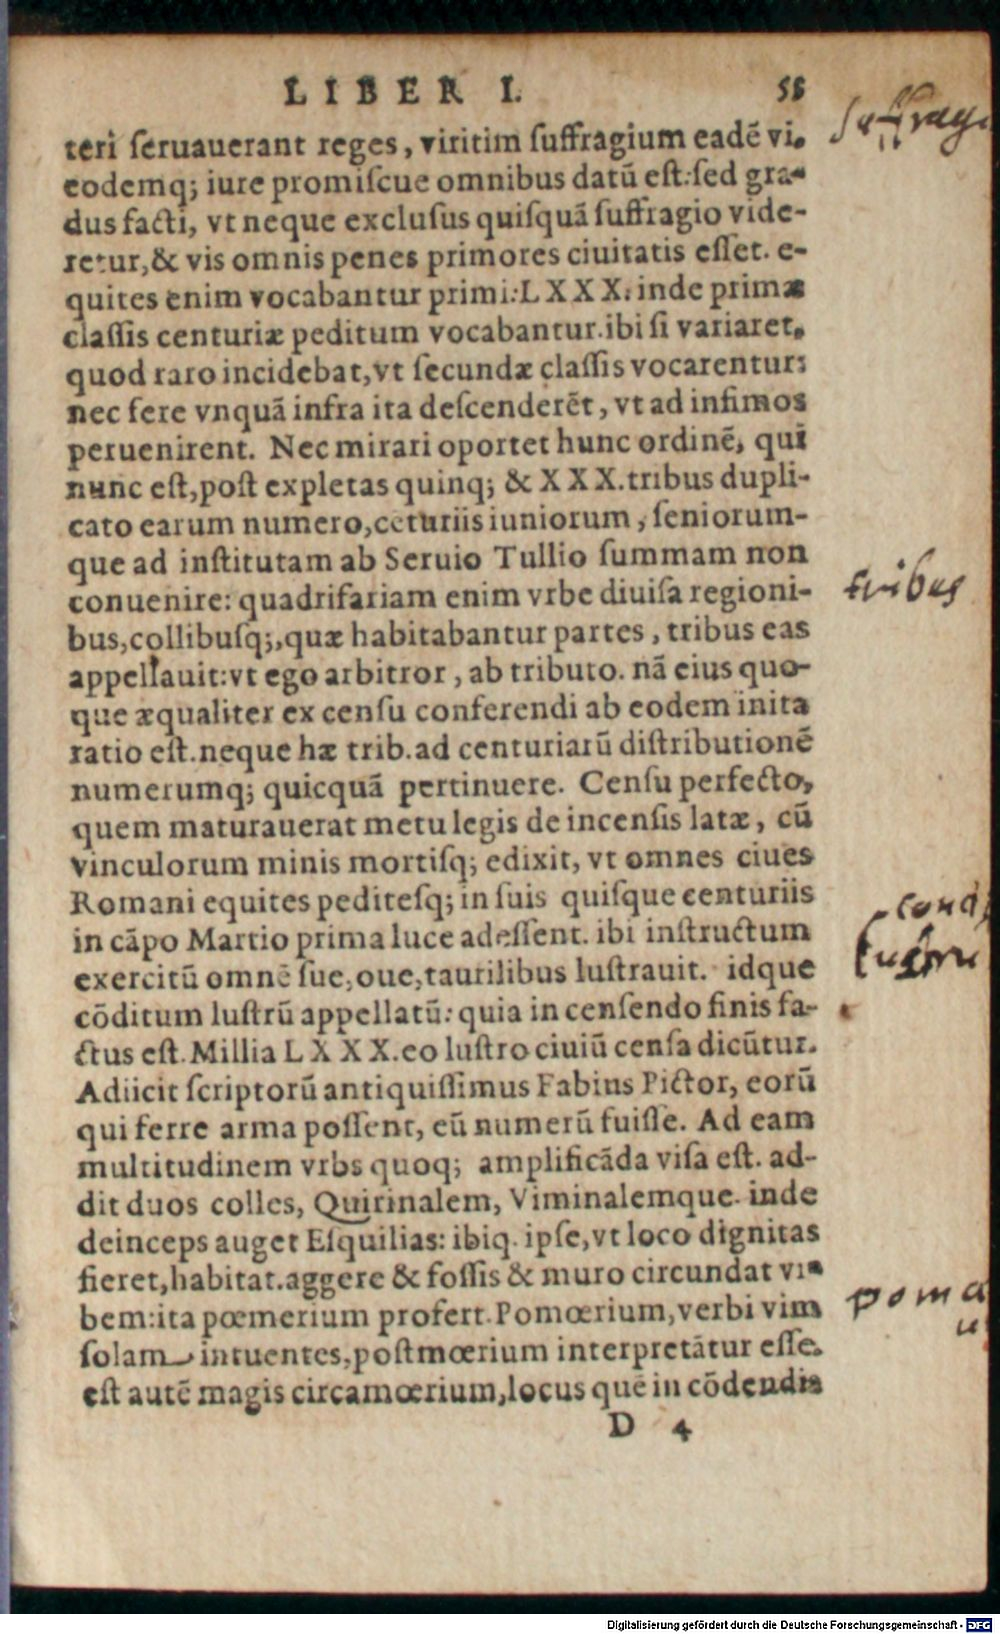 LIBER I. 55
Suffragi
teri seruauerant reges, viritim suffragium eadē vi,
eodemq; iure promiscue omnibus datū est: sed gra-
dus facti, vt neque exclusus quisquā suffragio vide-
retur, & vis omnis penes primores ciuitatis esset. e-
quites enim vocabantur primi: LXXX. inde primæ
classis centuriæ peditum vocabantur. ibi si variaret,
quod raro incidebat, vt secundæ classis vocarentur:
nec fere vnquā infra ita descenderēt, vt ad infimos
peruenirent. Nec mirari oportet hunc ordinē, qui
nunc est, post expletas quinq; & XXX. tribus dupli-
cato earum numero, cēturiis iuniorum, seniorum-
que ad institutam ab Seruio Tullio summam non
conuenire: quadrifariam enim vrbe diuisa regioni-
tribus
bus, collibusq;, quæ habitabantur partes, tribus eas
appellauit: vt ego arbitror, ab tributo. nā eius quo-
que æqualiter ex censu conferendi ab eodem inita
ratio est. neque hæ trib. ad centuriarū distributionē
numerumq; quicquā pertinuere. Censu perfecto,
quem maturauerat metu legis de incensis latæ, cū
vinculorum minis mortisq; edixit, vt omnes ciues
Romani equites peditesq; in suis quisque centuriis
cond
in cāpo Martio prima luce adessent. ibi instructum
lustru
exercitū omnē sue, oue, taurilibus lustrauit. idque
cōditum lustrū appellatū: quia in censendo finis fa-
ctus est. Millia LXXX. eo lustro ciuiū censa dicūtur.
Adiicit scriptorū antiquissimus Fabius Pictor, eorū
qui ferre arma possent, eū numerū fuisse. Ad eam
multitudinem vrbs quoq; amplificāda visa est. ad-
dit duos colles, Quirinalem, Viminalemque. inde
deinceps auget Esquilias: ibiq. ipse, vt loco dignitas
fieret, habitat. aggere & fossis & muro circundat vr-
bem: ita pœmerium profert. Pomœrium, verbi vim
pomœ
solam intuentes, postmœrium interpretātur esse.
est autē magis circamœrium, locus quē in cōdendis
D 4
Digitalisierung gefördert durch die Deutsche Forschungsgemeinschaft - DFG